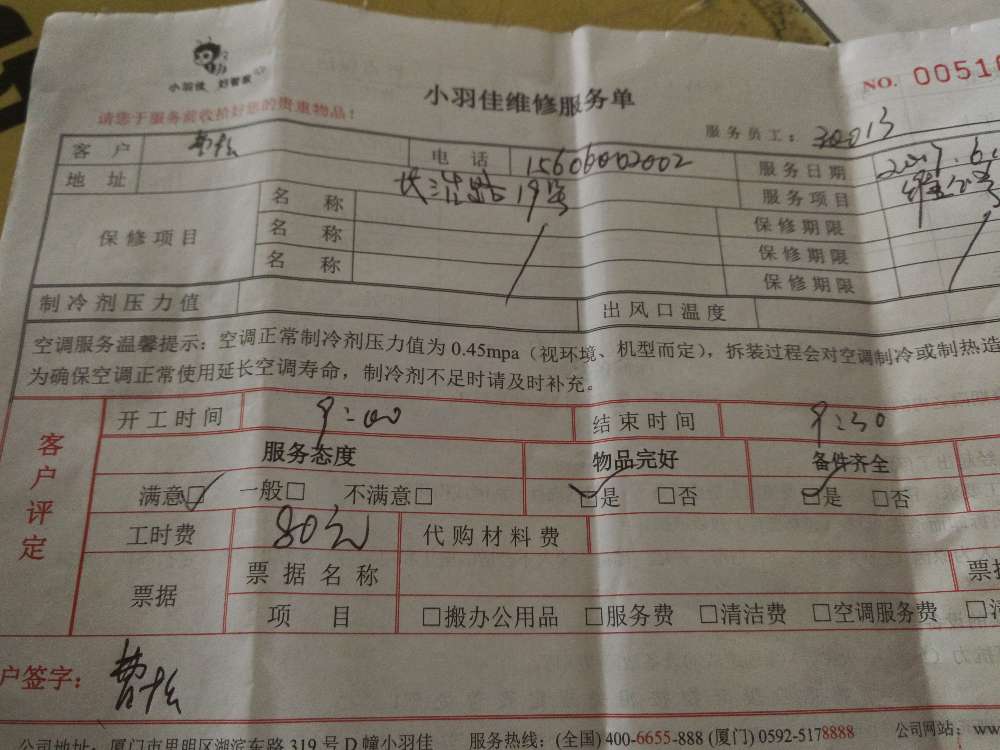 小羽佳 好管家
小羽佳维修服务单
NO. 00510
请您于服务前收拾好您的贵重物品！
服务员工：30013
客户
电话 15606002002
服务日期 2017.6
地址 长浩路19号
服务项目
保修项目
名称
保修期限
名称
保修期限
名称
保修期限
制冷剂压力值
出风口温度
空调服务温馨提示：空调正常制冷剂压力值为0.45mpa（视环境、机型而定），拆装过程会对空调制冷或制热造
为确保空调正常使用延长空调寿命，制冷剂不足时请及时补充。
客户评定
开工时间 9:00
结束时间 9:30
服务态度
物品完好
备件齐全
满意☑ 一般□ 不满意□
☑是 □否
☑是 □否
工时费 80元
代购材料费
票据
票据名称
票据
项目
□搬办公用品 □服务费 □清洁费 □空调服务费
户签字：
公司地址：厦门市思明区湖滨东路319号D幢小羽佳
服务热线：(全国) 400-6655-888 (厦门) 0592-5178888
公司网站：www